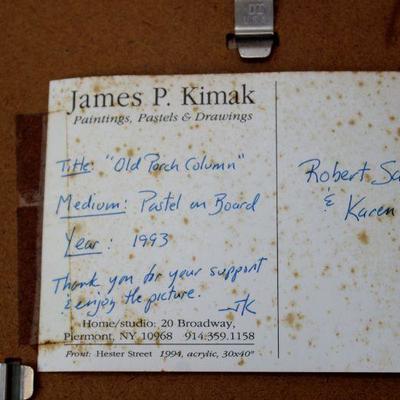 U.S.A.
James P. Kimak
Paintings, Pastels & Drawings
Title: "Old Porch Column"
Medium: Pastel on Board
Year: 1993
Thank you for your support
& enjoy the picture.
JK
Home/studio: 20 Broadway,
Piermont, NY 10968 914.359.1158
Front: Hester Street 1994, acrylic, 30x40"
Robert
& Karen